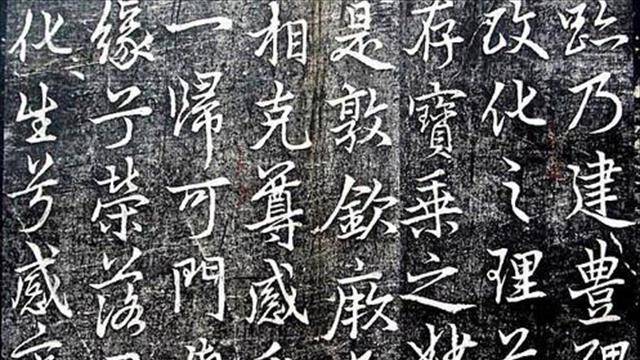 跡乃建豐
改化之理
存寶乘之
是敦欽厥
相克尊感
一歸可門
緣兮榮落
化生兮感